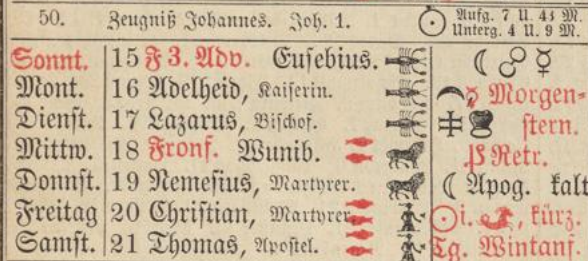 50. Zeugniß Johannes. Joh. 1. Aufg. 7 U. 43 M.
Unterg. 4 U. 9 M.
Sonnt. 15 F 3. Adv. Eusebius. ☾ ☍ ☿
Mont. 16 Adelheid, Kaiserin. Morgen-
Dienst. 17 Lazarus, Bischof. stern.
Mittw. 18 Fronf. Wunib. Retr.
Donnst. 19 Nemesius, Martyrer. ☾ Apog. kalt
Freitag 20 Christian, Martyrer. ☉ i. , kürz.
Samst. 21 Thomas, Apostel. Tg. Wintanf.